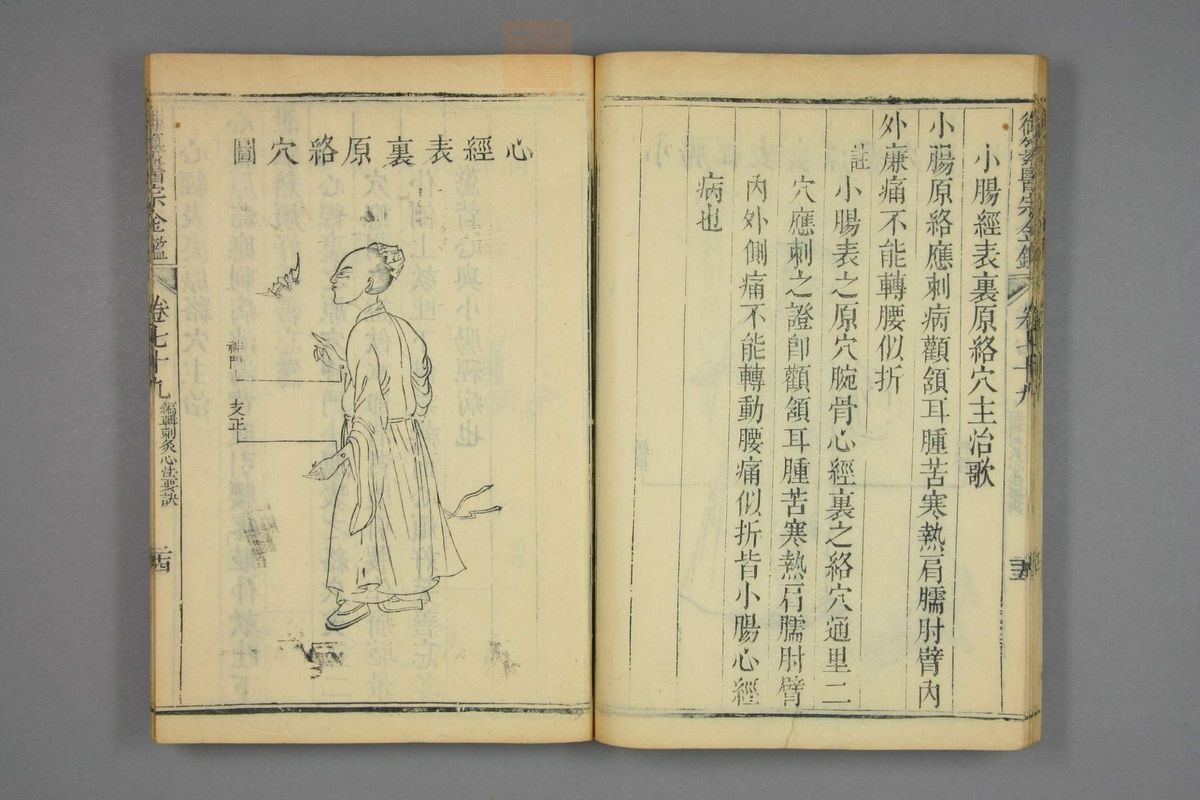 小腸經表裏原絡穴主治歌
小腸原絡應刺病顴頷耳腫苦寒熱肩臑肘臂內
外廉痛不能轉腰似折
註
小腸表之原穴腕骨心經裏之絡穴通里二
穴應刺之證卽顴頷耳腫苦寒熱肩臑肘臂
內外側痛不能轉動腰痛似折皆小腸心經
病也
心經表裏原絡穴圖
神門
支正
卷七十九
編輯刺灸心法要訣